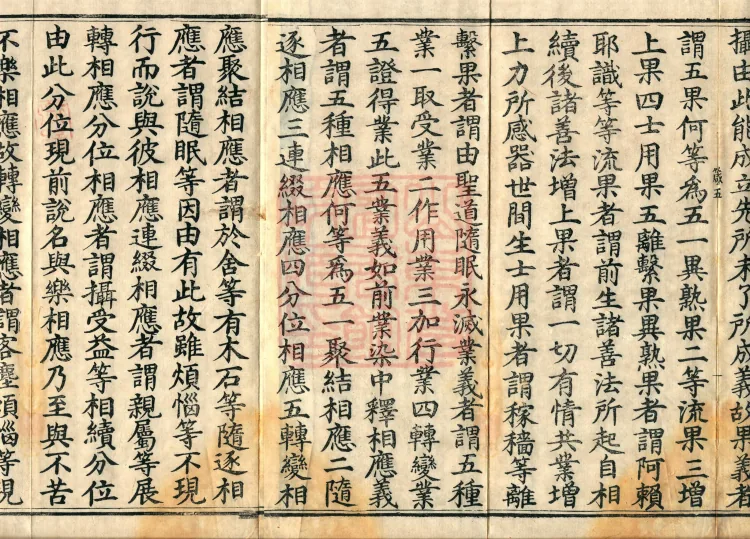 攝由此能成立先所未了所成義故果義者
葳五
謂五果何等為五一異熟果二等流果三增
上果四士用果五離繫果異熟果者謂阿賴
耶識等等流果者謂前生諸善法所起自相
續後諸善法增上果者謂一切有情共業增
上力所感器世間生士用果者謂稼穡等離
繫果者謂由聖道隨眠永滅業義者謂五種
業一取受業二作用業三加行業四轉變業
五證得業此五業義如前業染中釋相應義
者謂五種相應何等爲五一聚結相應二隨
逐相應三連綴相應四分位相應五轉變相
應聚結相應者謂於舍等有木石等隨逐相
應者謂隨眠等因由有此故雖煩惱等不現
行而說與彼相應連綴相應者謂親屬等展
轉相應分位相應者謂攝受益等相續分位
由此分位現前說名與樂相應乃至與不苦
不樂相應故轉變相應者謂客塵煩惱等現